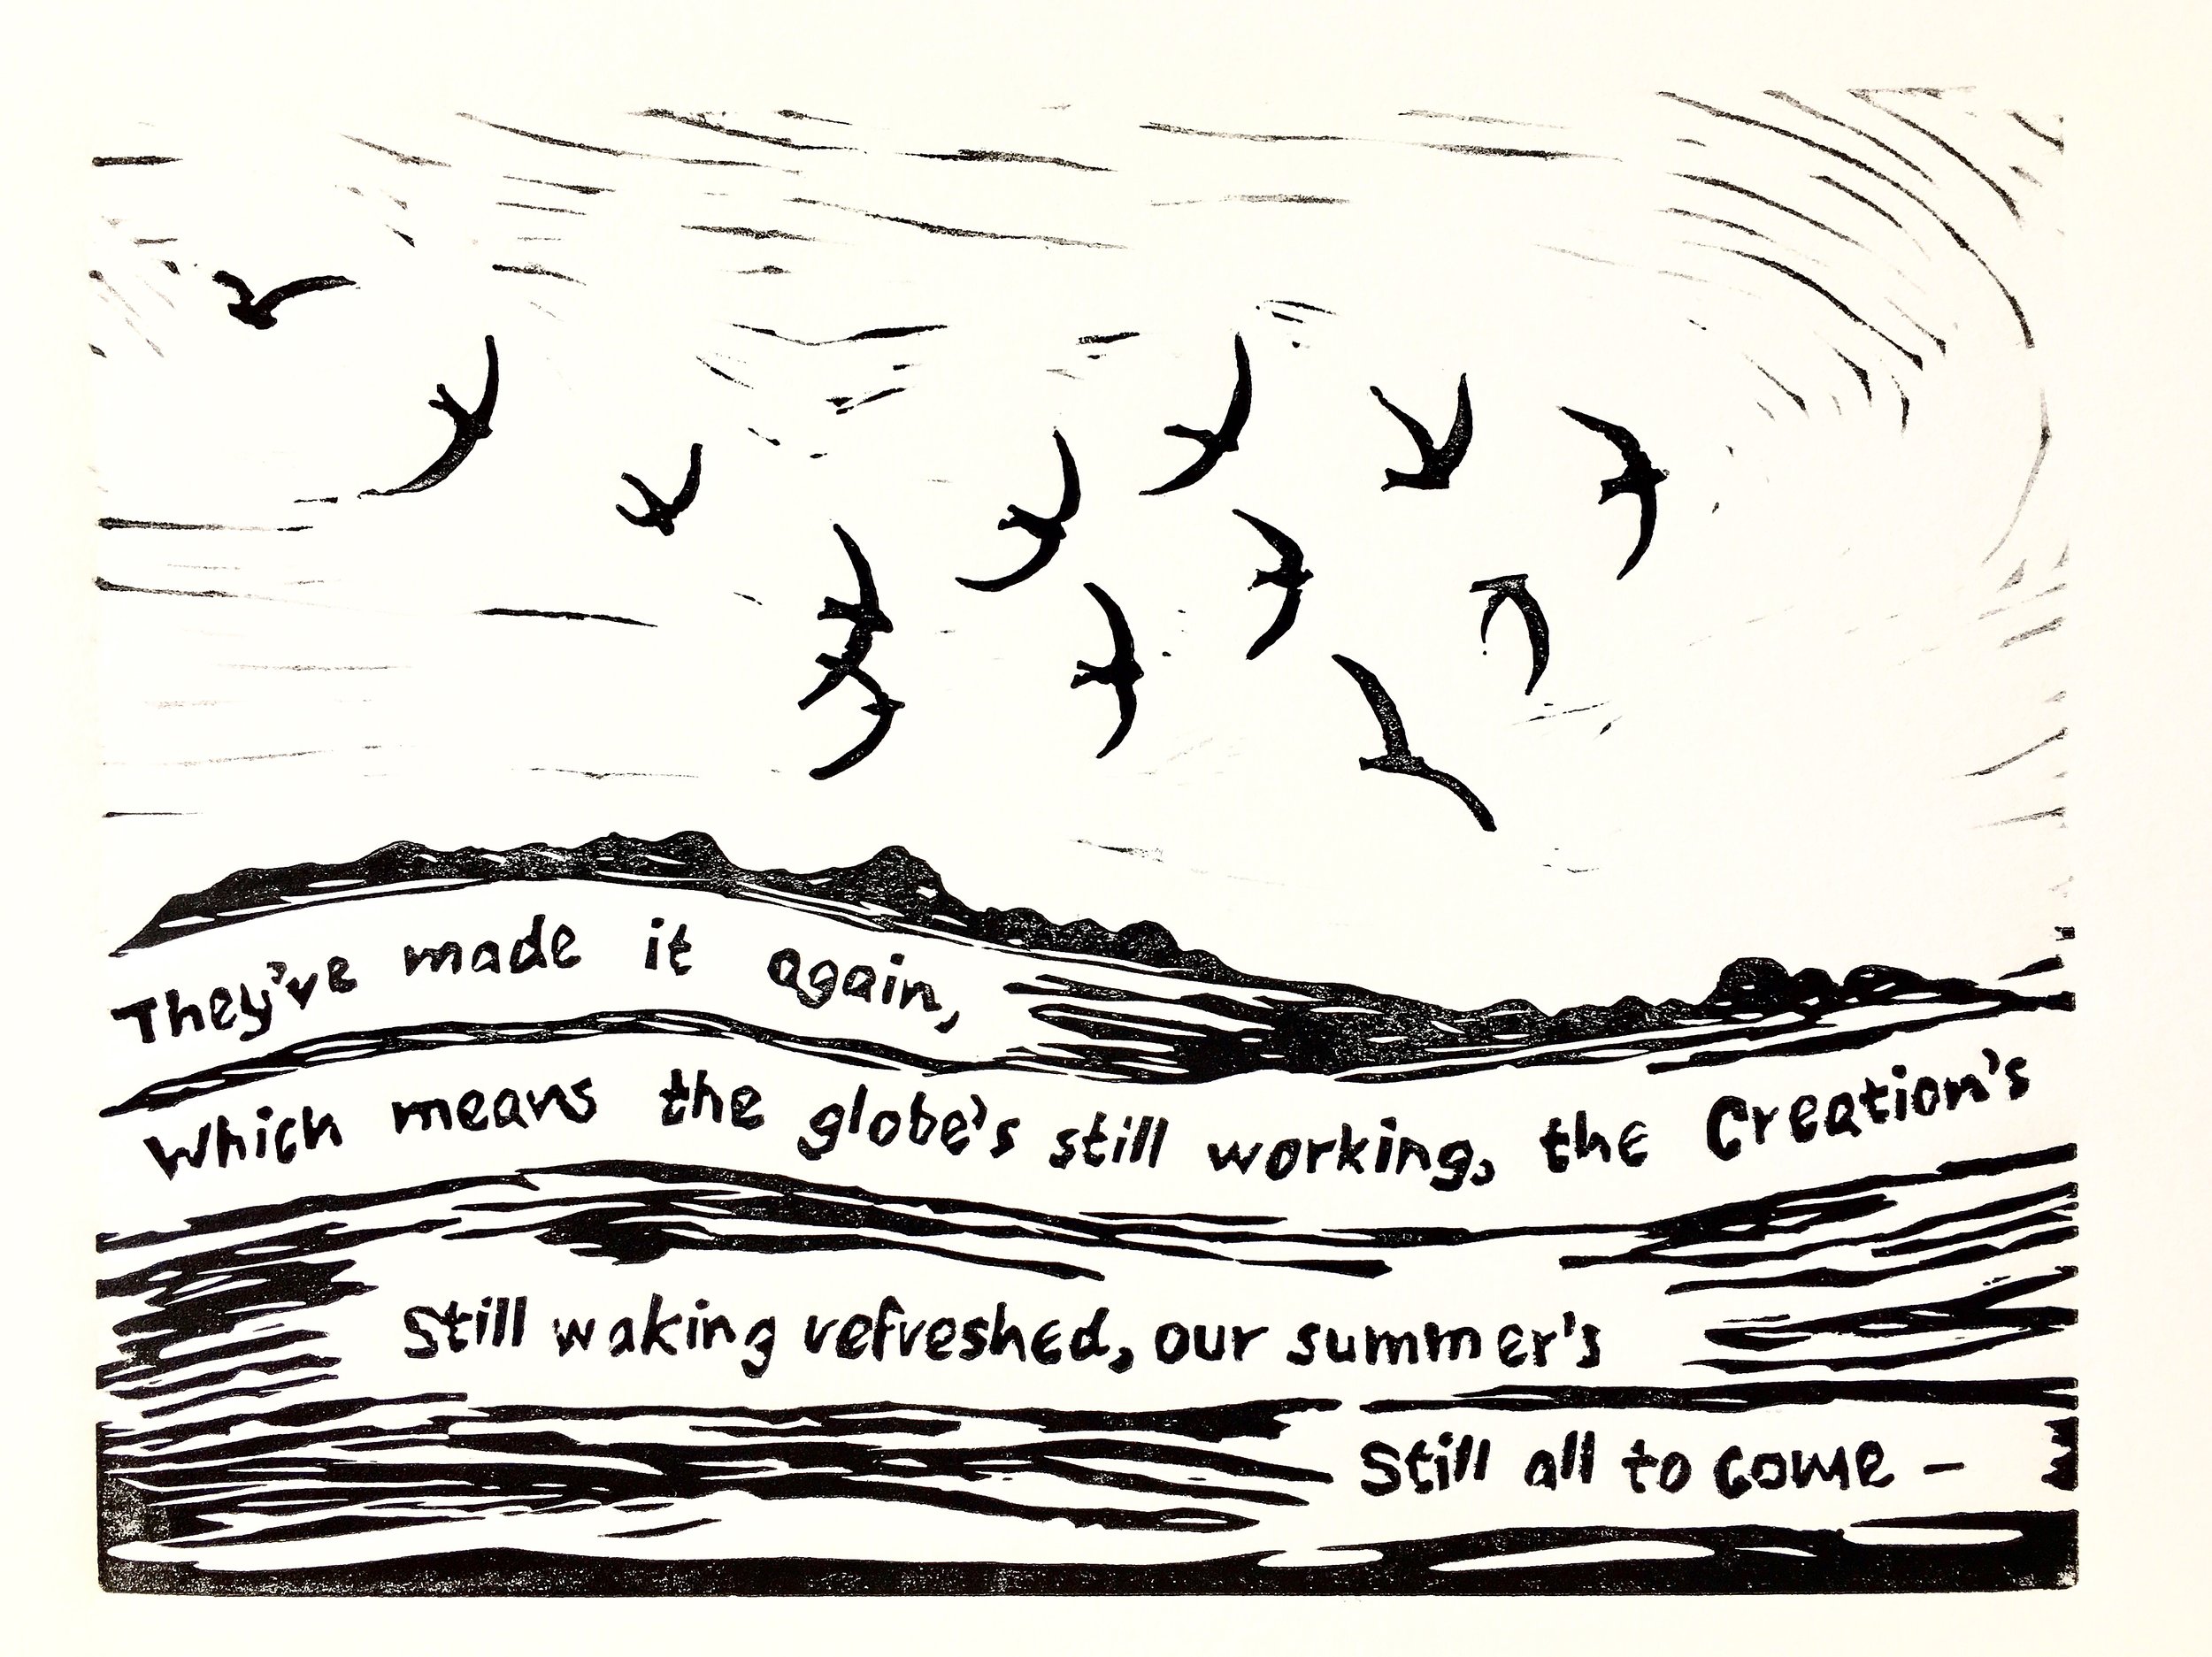 They've made it again,
Which means the globe's still working, the Creation's
Still waking refreshed, our summer's
Still all to come –